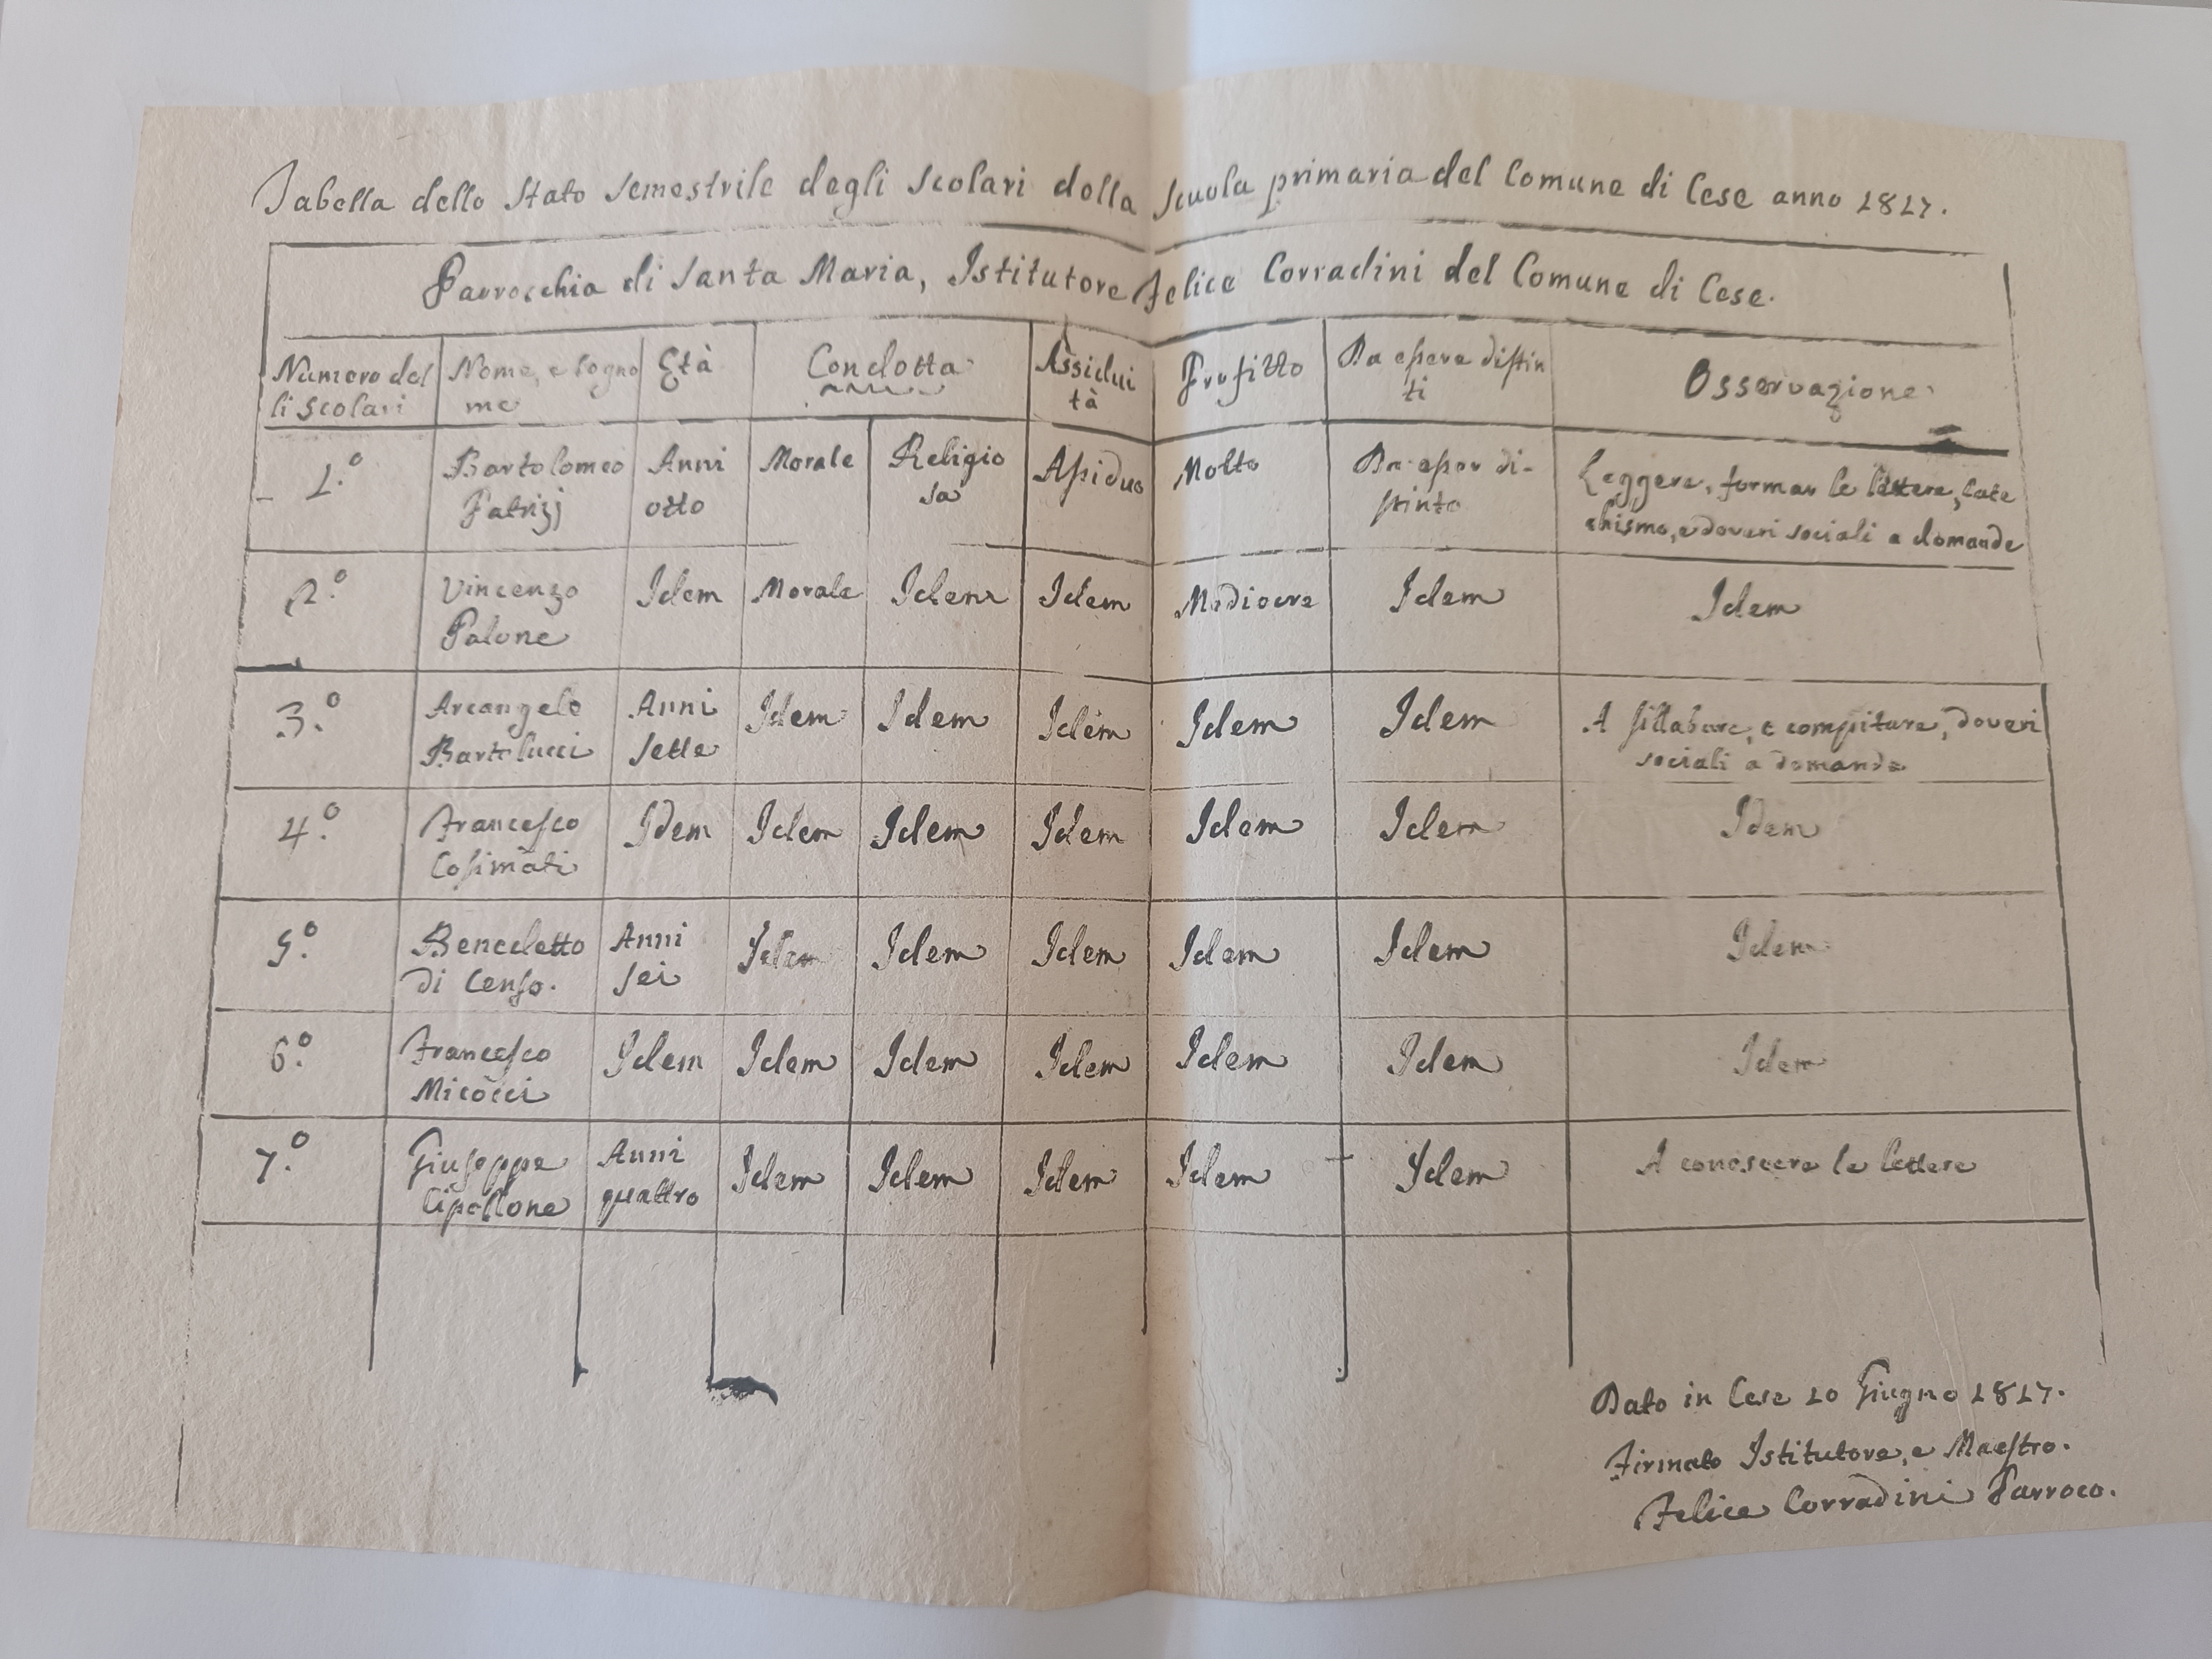 Tabella dello Stato semestrile degli scolari della scuola primaria del Comune di Cese anno 1817.
Parrocchia di Santa Maria, Istitutore Felice Corradini del Comune di Cese.
Numero del Nome, e Cogno Età Condotta Assidui Profitto Da essere distin Osservazione
li scolari me tà ti
1.º Bartolomeo Anni Morale Religio Assiduo Molto Da esser di- Leggere, formar le lettere, cate
Patrizj otto sa stinto chismo, e doveri sociali a domande
2.º Vincenzo Idem Morale Idem Idem Mediocre Idem Idem
Palone
3.º Arcangelo Anni Idem Idem Idem Idem Idem A sillabare, e compitare, doveri
Bartolucci sette sociali a domande
4.º Francesco Idem Idem Idem Idem Idem Idem Idem
Cosimati
5.º Benedetto Anni Idem Idem Idem Idem Idem Idem
di Censo. sei
6.º Francesco Idem Idem Idem Idem Idem Idem Idem
Micocci
7.º Giuseppe Anni Idem Idem Idem Idem Idem A conoscere le lettere
Cipollone quattro
Dato in Cese 10 Giugno 1817.
Firmato Istitutore, e Maestro.
Felice Corradini Parroco.